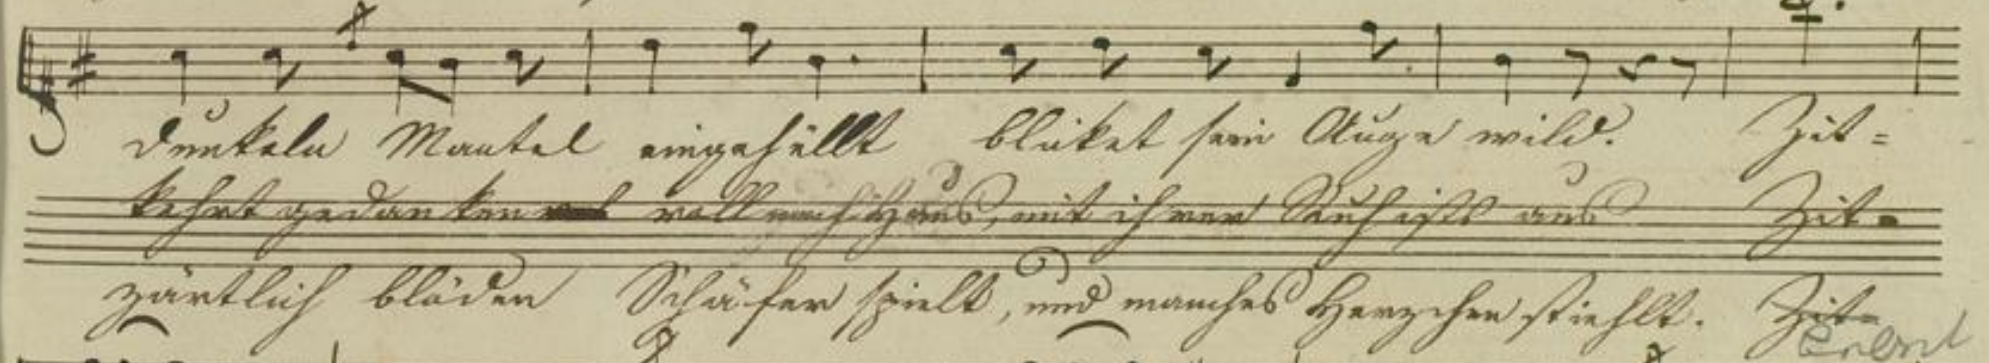 dunkeln Mantel eingehüllt bliket sein Auge wild. Zit=
kehrt gedanken voll nach Haus, mit ihrer Ruh ists aus Zit=
zärtlich blöden Schäfer spielt, und manches Herzchen stiehlt. Zit=